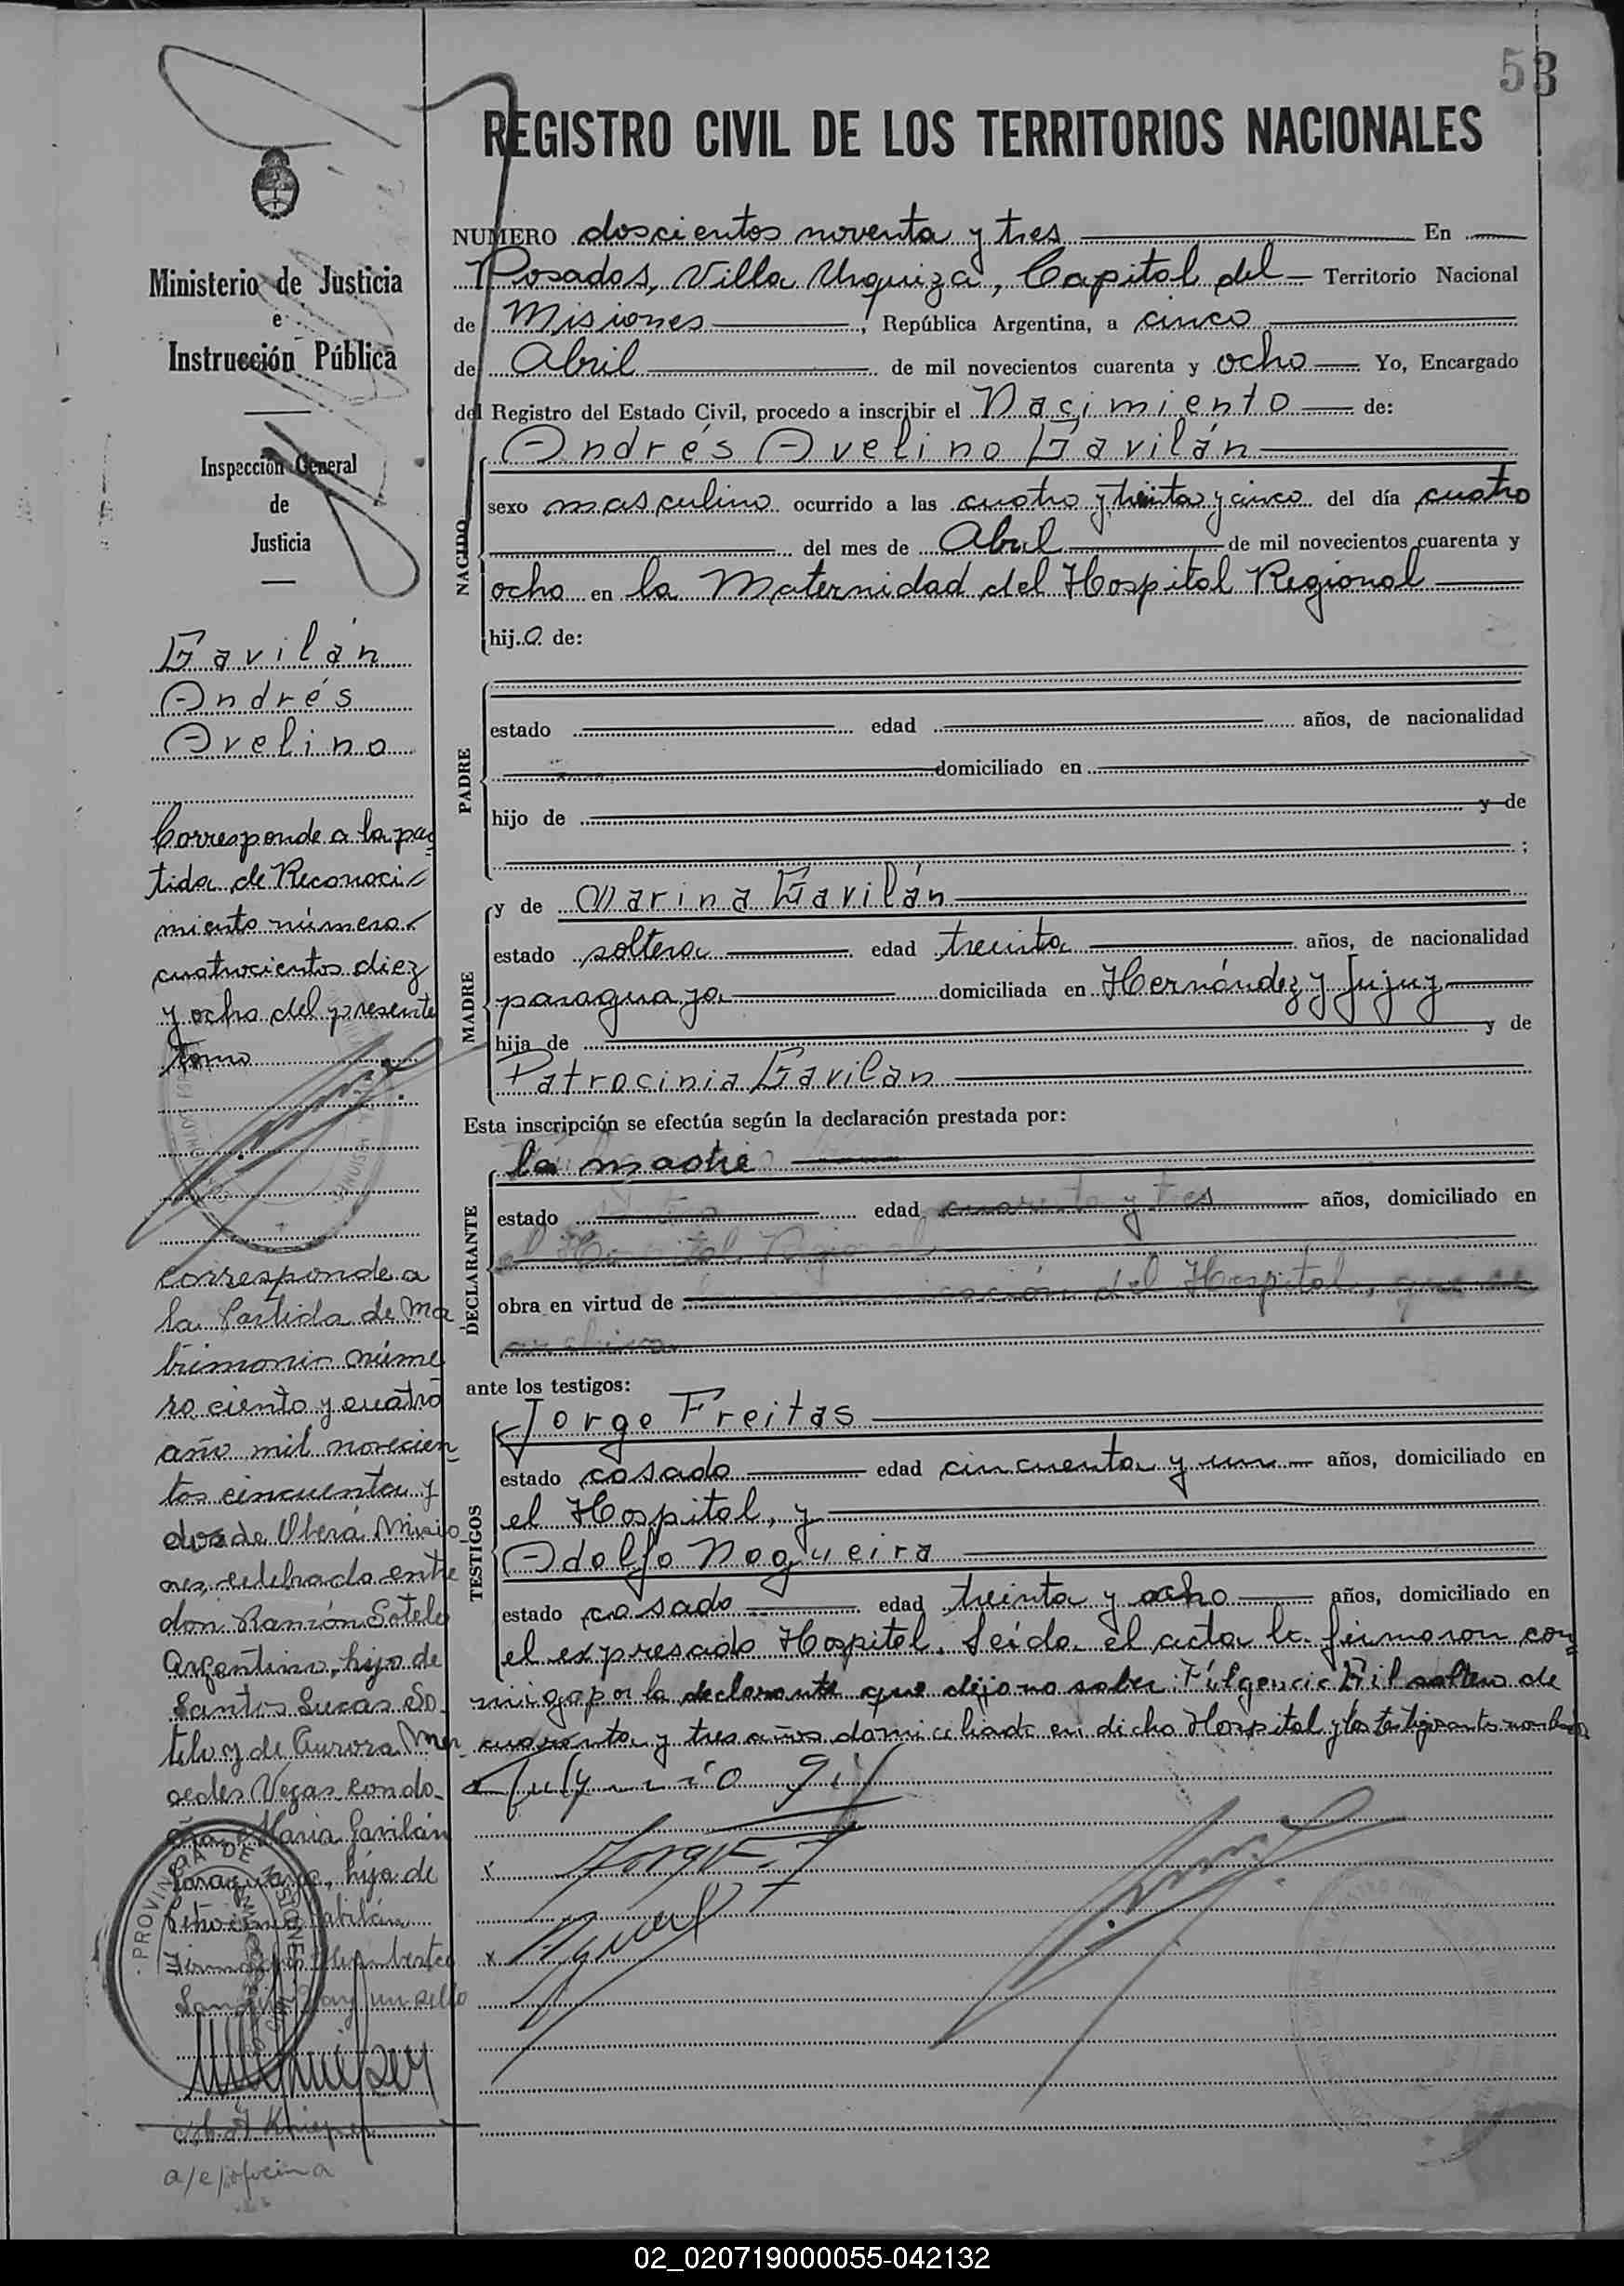 53
REGISTRO CIVIL DE LOS TERRITORIOS NACIONALES
Ministerio de Justicia
e
Instrucción Pública
Inspección General
de
Justicia
Gavilán
Andrés
Avelino
Corresponde a la par
tida de Reconoci-
miento número
cuatrocientos diez
y ocho del presente
tomo
Corresponde a
la Partida de Ma
trimonio núme
ro ciento y cuatro
año mil novecien
tos cincuenta y
dos de Oberá Misio
nes, celebrado entre
don Ramón Sotelo
Argentino, hijo de
Santos Lucas So-
telo y de Aurora Mer-
cedes Vegas con do-
ña María Gavilán
Paraguaya, hija de
Gavilán
hay un sello
PROVINCIA DE MISIONES
a/e/oficina
NUMERO doscientos noventa y tres En
Posadas, Villa Urquiza, Capital del Territorio Nacional
de Misiones, República Argentina, a cinco
de Abril de mil novecientos cuarenta y ocho Yo, Encargado
del Registro del Estado Civil, procedo a inscribir el Nacimiento de:
Andrés Avelino Gavilán
NACIDO
sexo masculino ocurrido a las cuatro y treinta y cinco del día cuatro
del mes de Abril de mil novecientos cuarenta y
ocho en la Maternidad del Hospital Regional
hijo de:
PADRE
estado edad años, de nacionalidad
domiciliado en
hijo de y de
;
MADRE
y de Marina Gavilán
estado soltera edad treinta años, de nacionalidad
paraguaya domiciliada en Hernández y Jujuy
hija de y de
Patrocinia Gavilan
Esta inscripción se efectúa según la declaración prestada por:
DECLARANTE
la madre
estado edad cuarenta y tres años, domiciliado en
el Hospital Regional
obra en virtud de del Hospital, que se
archiva
ante los testigos:
TESTIGOS
Jorge Freitas
estado casado edad cincuenta y un años, domiciliado en
el Hospital, y
Adolfo Nogueira
estado casado edad treinta y ocho años, domiciliado en
el expresado Hospital. Leída el acta la firmaron con-
migo por la declarante que dijo no saber Fulgencio Gil soltero de
cuarenta y tres años domiciliado en dicho Hospital y los testigos
Gil
02_020719000055-042132